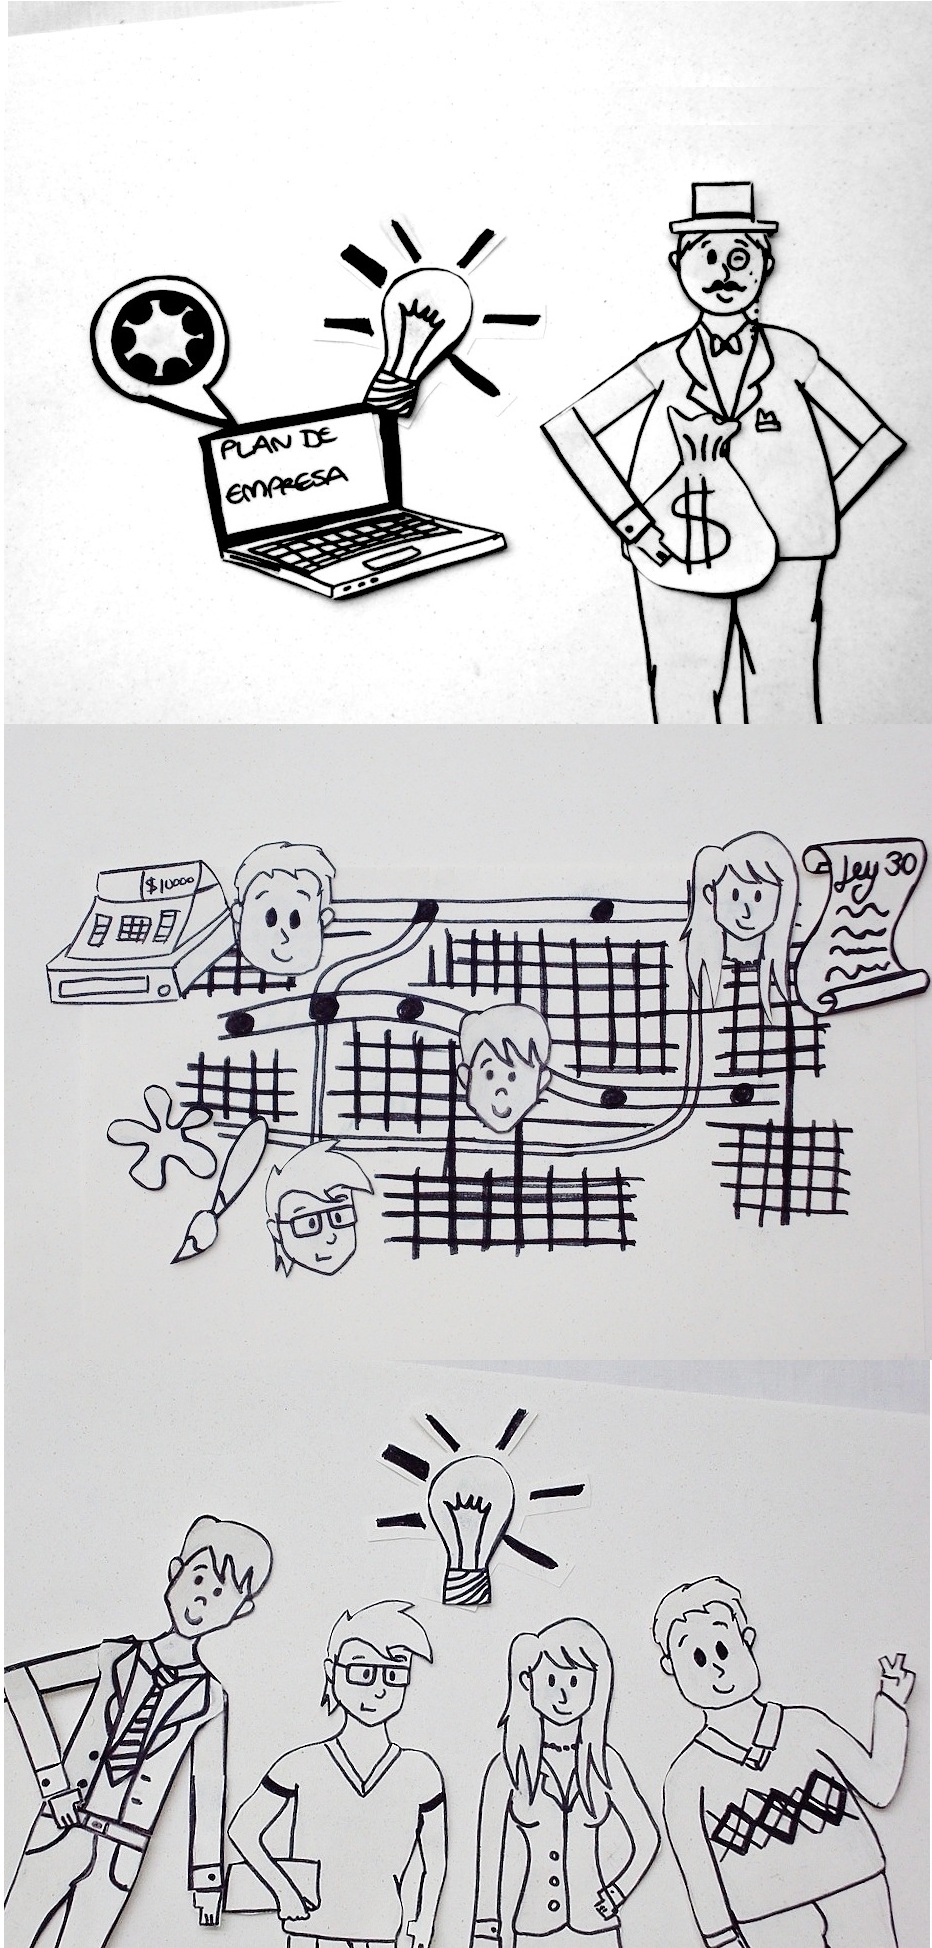 PLAN DE
EMPRESA
$
$10000
Ley 30